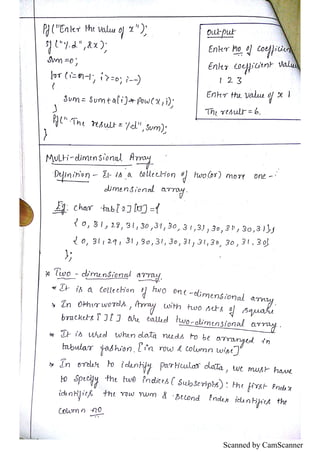 Pf("Enter the value of x");
Sf("%d",&x);
Sum=0;
for(i=n-1; i>=0; i--)
{
Sum = Sum + a[i] * pow(x,i);
}
Pf("The result = %d", Sum);
}
output
Enter no of coefficien
Enter coefficient value
1 2 3
Enter the value of x 1
The result = 6.
Multi-dimensional Array
Definition - It is a collection of two(or) more one-
dimensional array.
Eg: char tab[2][13] = {
{0, 31, 28, 31, 30, 31, 30, 31, 31, 30, 31, 30, 31}
{0, 31, 29, 31, 30, 31, 30, 31, 31, 30, 31, 30}
};
* Two-dimensional array.
* It is a collection of two one-dimensional array.
* In other words, Array with two sets of square
brackets [ ] [ ] are called two-dimensional array.
* It is used when data needs to be arranged in
tabular fashion. [in row & column wise]
* In order to identify particular data, we must have
to specify the two indices (subscripts): the first index
identifies the row num & second index identifies the
column no
Scanned by CamScanner